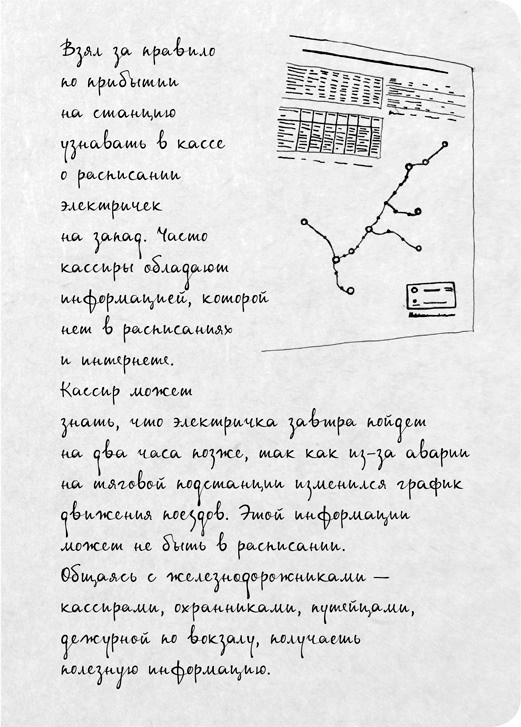 Взял за правило
по прибытии
на станцию
узнавать в кассе
о расписании
электричек
на запад. Часто
кассиры обладают
информацией, которой
нет в расписаниях
и интернете.
Кассир может
знать, что электричка завтра пойдет
на два часа позже, так как из-за аварии
на тяговой подстанции изменился график
движения поездов. Этой информации
может не быть в расписании.
Общаясь с железнодорожниками —
кассирами, охранниками, путейцами,
дежурной по вокзалу, получаешь
полезную информацию.